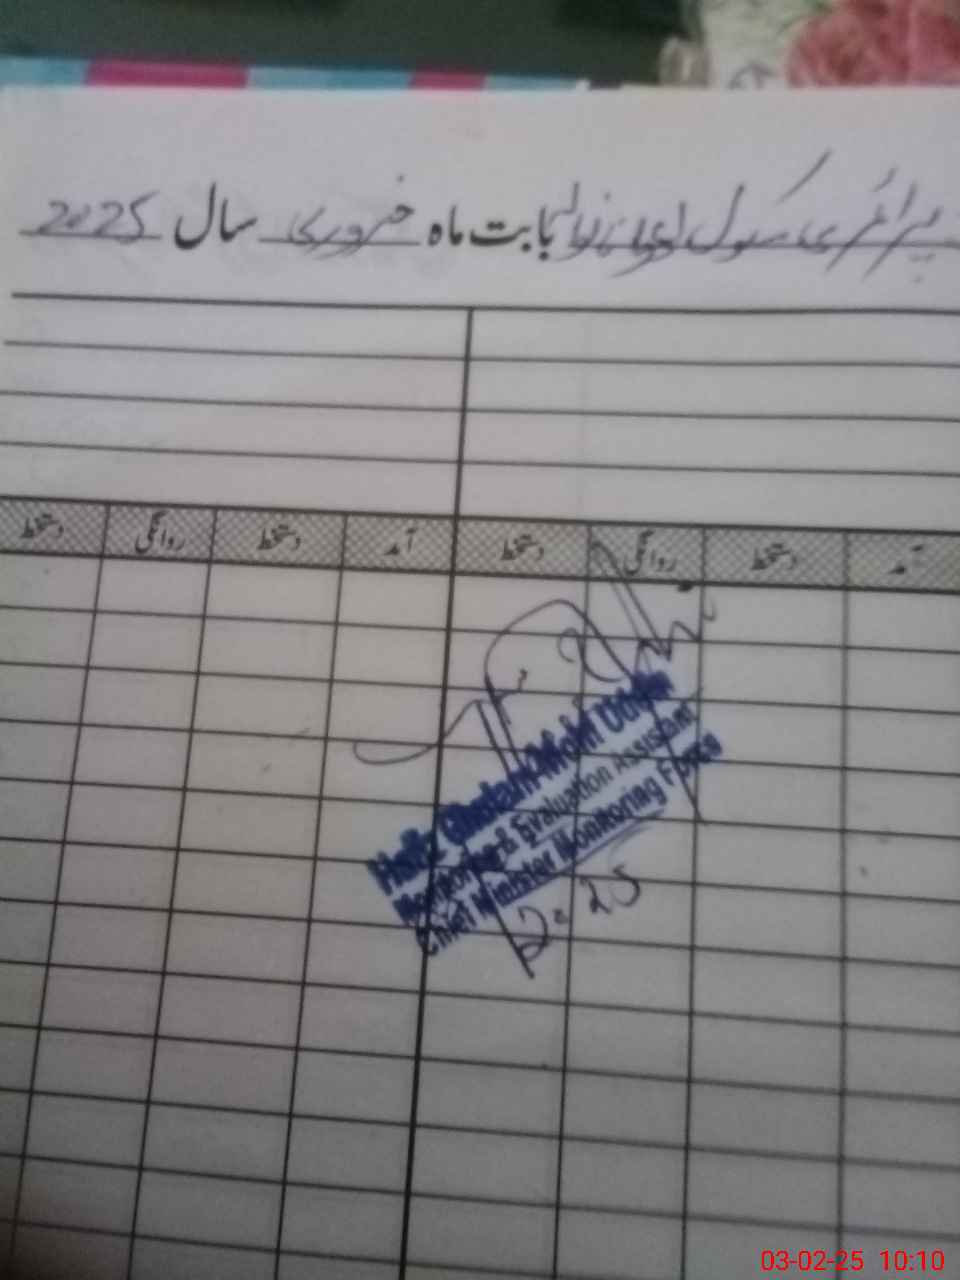 پرائمری سکول بابت ماہ فروری سال 2025
آمد دستخط روانگی دستخط آمد دستخط روانگی دستخط
Hafiz Ghulam Mohi Uddin
Monitoring & Evaluation Assistant
Chief Minister Monitoring Force
03-02-25 10:10